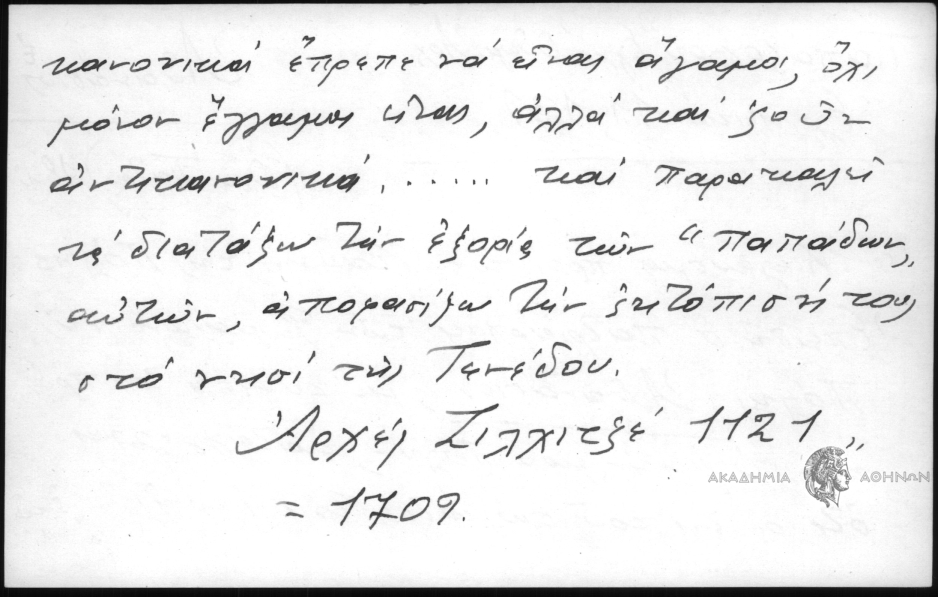 κανονικά ἔπρεπε νά εἶναι ἄγαμοι, ὄχι
μόνον ἔγγαμοι εἶναι, ἀλλά καί ζοῦν
ἀντικανονικά. ..... καί παρακαλεῖ
νά διατάξω τήν ἐξορία τῶν "παπάδων„
αὐτῶν, ἀποφασίζω τήν ἐκτόπισή τους
στό νησί τῆς Τενέδου.
Ἀρχές Ζιλχιτζέ 1121 „
= 1709.
ΑΚΑΔΗΜΙΑ ΑΘΗΝΩΝ